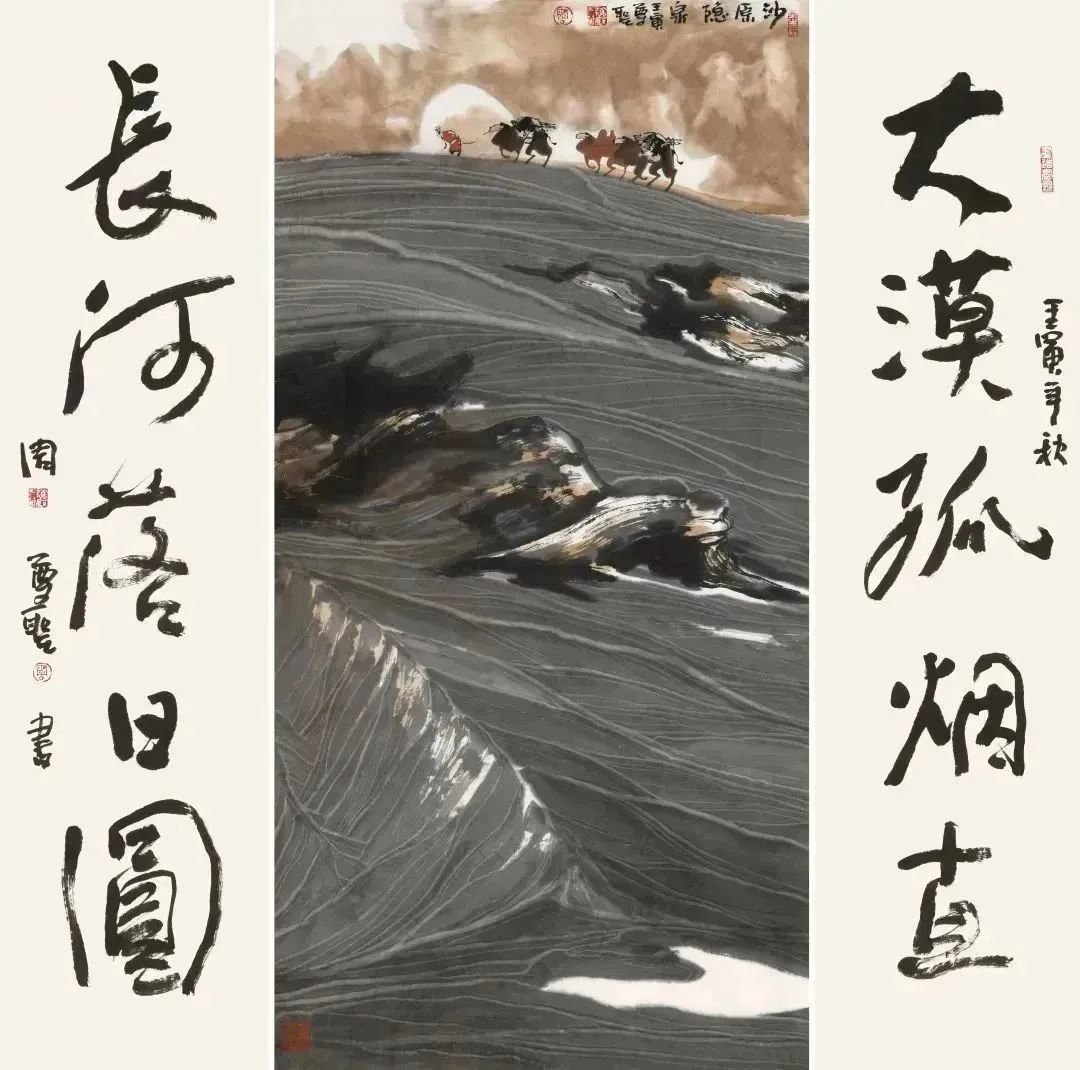 壬寅年秋
大漠孤烟直
沙原隐泉
壬寅
尊聖
長河落日圓
周尊聖書